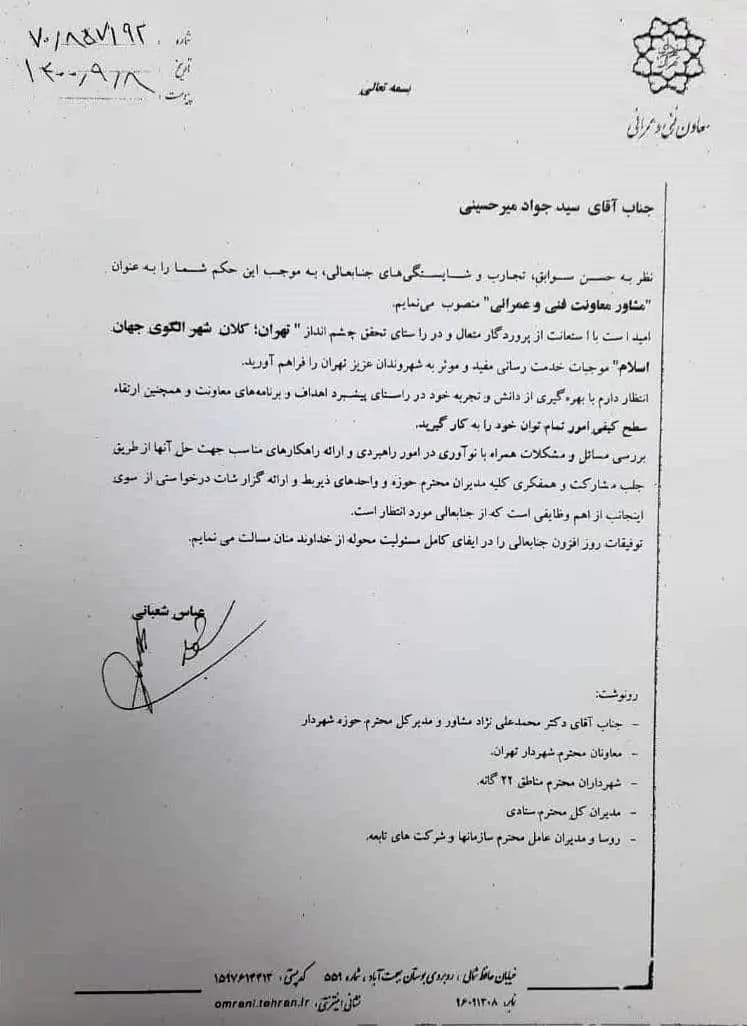 شماره ۷۰/۸۵۷۱۹۲
تاریخ ۱۴۰۰/۹/۸
پیوست
بسمه تعالی
معاون فنی و عمرانی
جناب آقای سید جواد میرحسینی
نظر به حسن سوابق، تجارب و شایستگی‌های جنابعالی، به موجب این حکم شما را به عنوان
"مشاور معاونت فنی و عمرانی" منصوب می‌نمایم.
امید است با استعانت از پروردگار متعال و در راستای تحقق چشم انداز " تهران؛ کلان شهر الگوی جهان
اسلام" موجبات خدمت رسانی مفید و موثر به شهروندان عزیز تهران را فراهم آورید.
انتظار دارم با بهره‌گیری از دانش و تجربه خود در راستای پیشبرد اهداف و برنامه‌های معاونت و همچنین ارتقاء
سطح کیفی امور تمام توان خود را به کار گیرید.
بررسی مسائل و مشکلات همراه با نوآوری در امور راهبردی و ارائه راهکارهای مناسب جهت حل آنها از طریق
جلب مشارکت و همفکری کلیه مدیران محترم حوزه و واحدهای ذیربط و ارائه گزارشات درخواستی از سوی
اینجانب از اهم وظایفی است که از جنابعالی مورد انتظار است.
توفیقات روز افزون جنابعالی را در ایفای کامل مسئولیت محوله از خداوند منان مسالت می نمایم.
عباس شعبانی
رونوشت:
- جناب آقای دکتر محمدعلی نژاد مشاور و مدیرکل محترم حوزه شهردار
- معاونان محترم شهردار تهران.
- شهرداران محترم مناطق ۲۲ گانه.
- مدیران کل محترم ستادی
- روسا و مدیران عامل محترم سازمانها و شرکت های تابعه.
خیابان حافظ شمالی ، روبروی بوستان بهجت آباد ، شماره ۵۵۱ کدپستی: ۱۵۹۷۶۱۴۴۱۳
نمابر: ۹۶۰۹۱۳۰۸ نشانی اینترنتی: omrani.tehran.ir